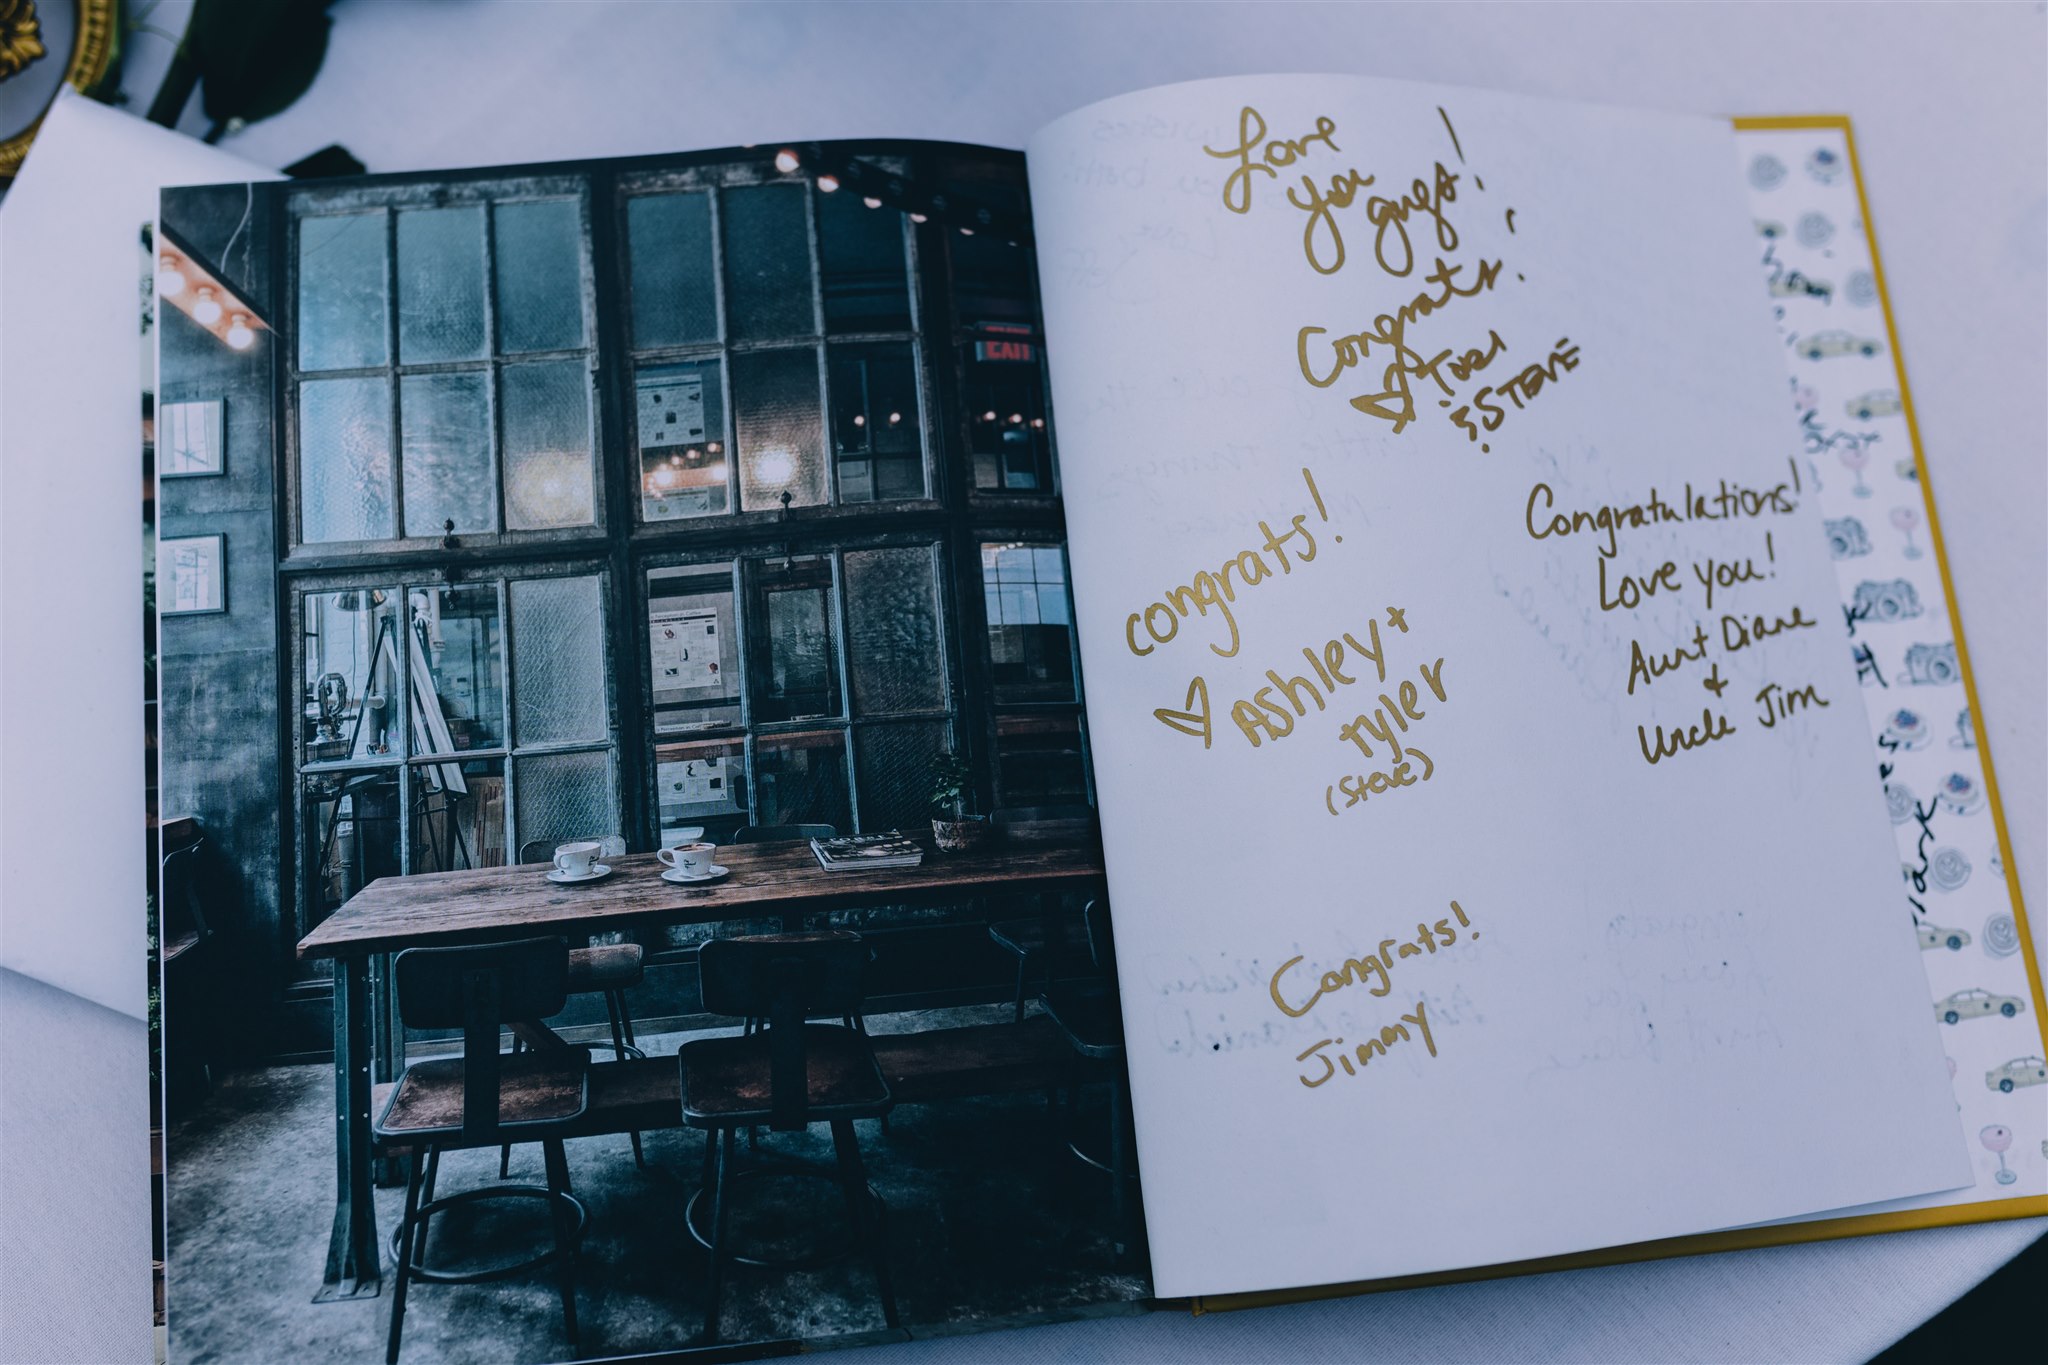 Love
you
guys!
Congrats!
♡ Tori
& STEVE
congrats!
♡ Ashley +
tyler
(Steve)
Congratulations!
Love you!
Aunt Diane
&
Uncle Jim
Congrats!
Jimmy